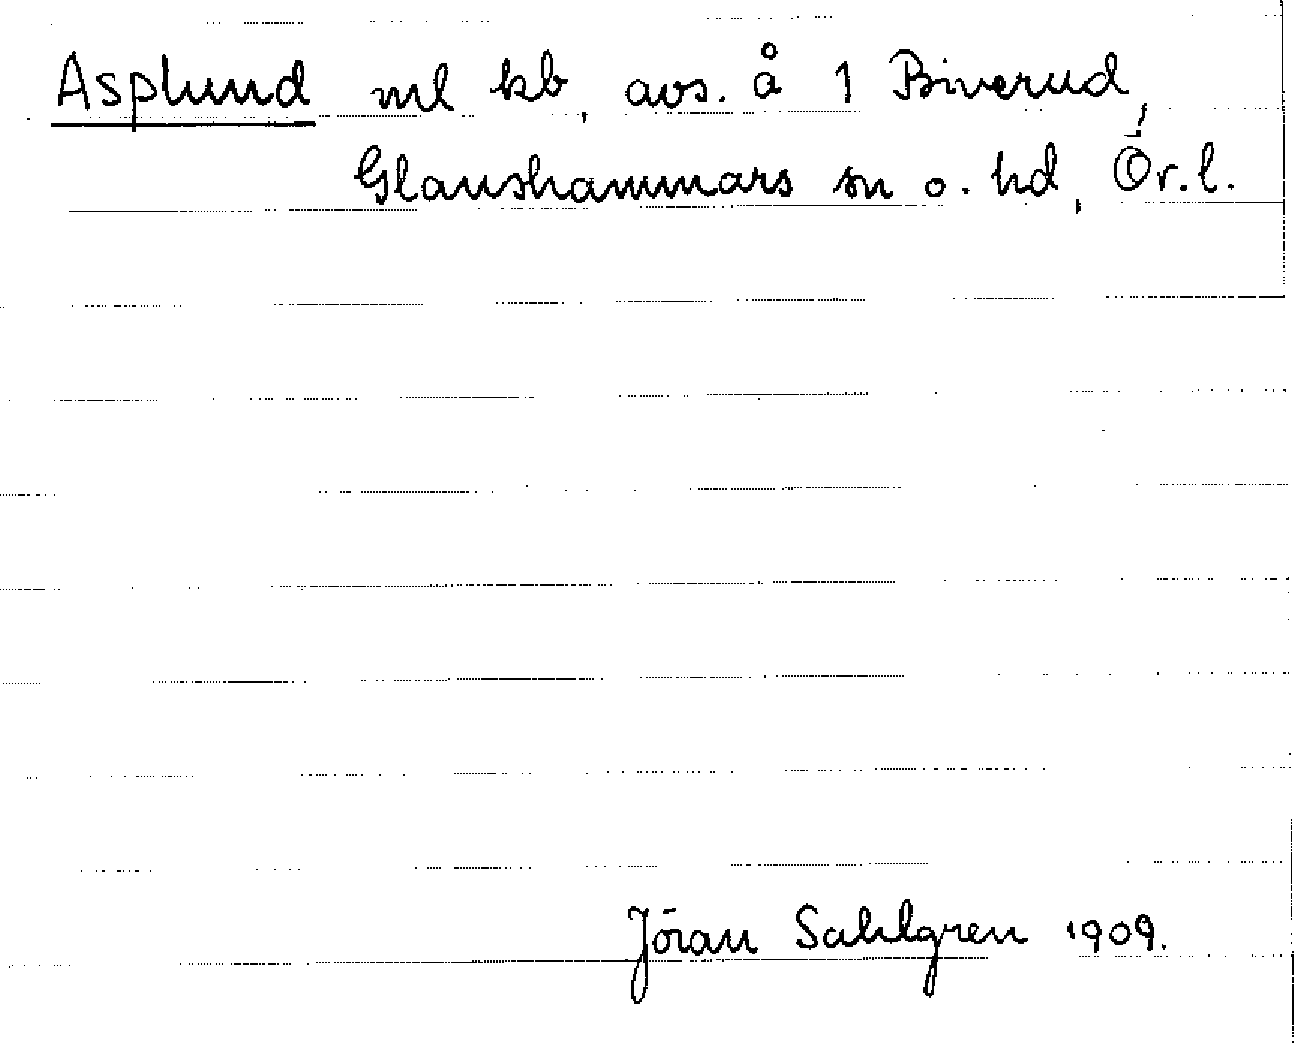 Asplund ml kb, avs. å 1 Biverud,
Glanshammars sn o. hd, Ör. l.
Jöran Sahlgren 1909.